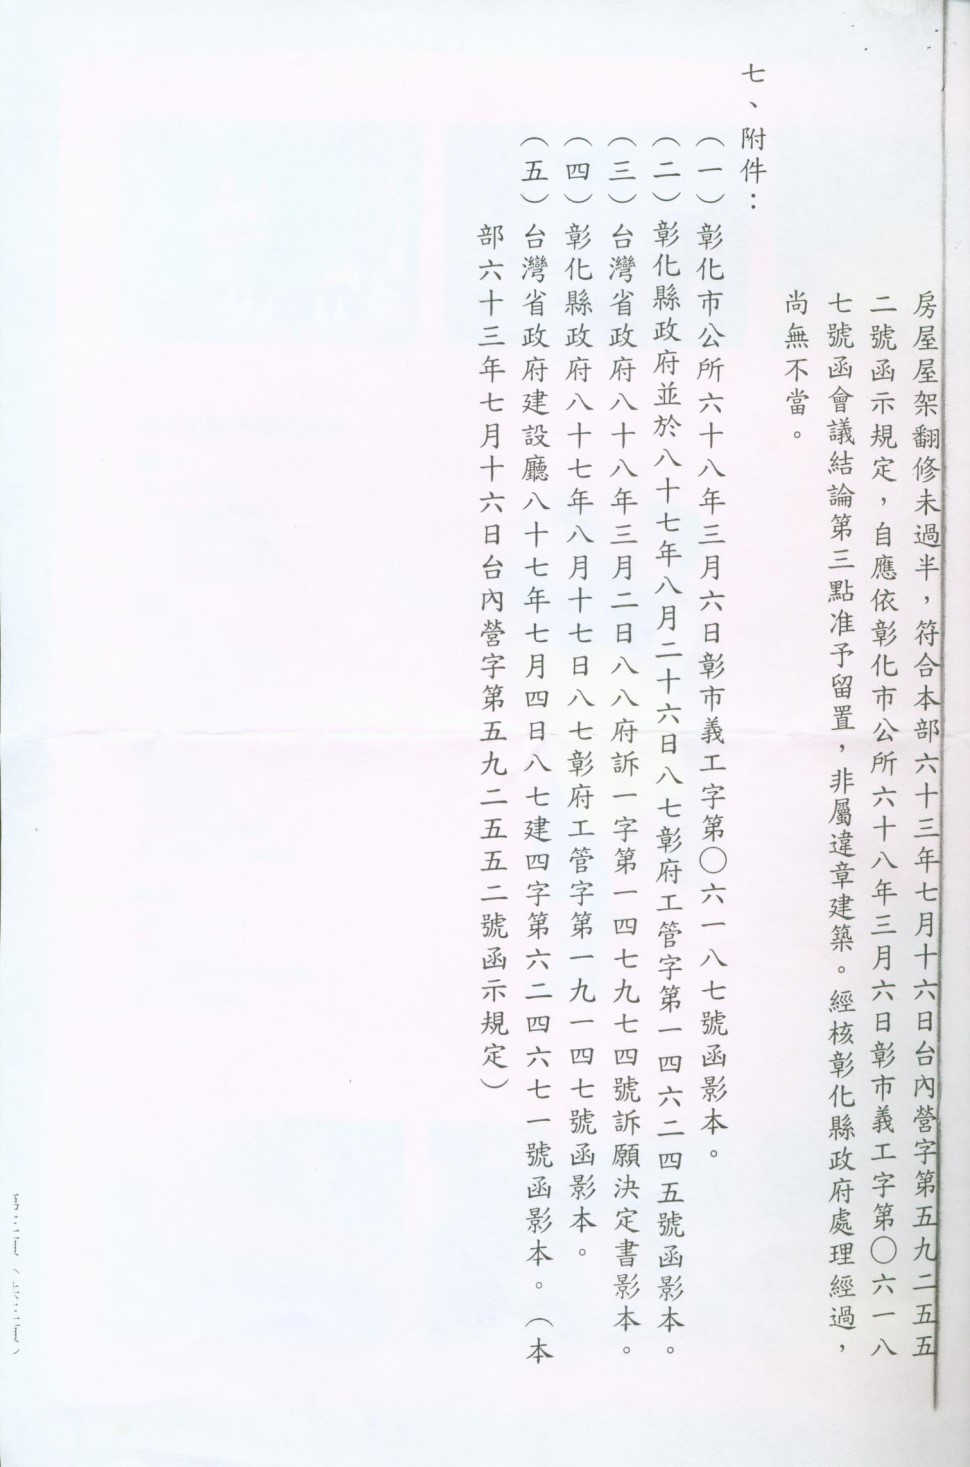 房屋屋架翻修未過半，符合本部六十三年七月十六日台內營字第五九二五五
二號函示規定，自應依彰化市公所六十八年三月六日彰市義工字第〇六一八
七號函會議結論第三點准予留置，非屬違章建築。經核彰化縣政府處理經過，
尚無不當。
七、附件：
（一）彰化市公所六十八年三月六日彰市義工字第〇六一八七號函影本。
（二）彰化縣政府並於八十七年八月二十六日八七彰府工管字第一四六二四五號函影本。
（三）台灣省政府八十八年三月二日八八府訴一字第一四七九七四號訴願決定書影本。
（四）彰化縣政府八十七年八月十七日八七彰府工管字第一九一四七號函影本。
（五）台灣省政府建設廳八十七年七月四日八七建四字第六二四六七一號函影本。（本
部六十三年七月十六日台內營字第五九二五五二號函示規定）
第三頁（共三頁）